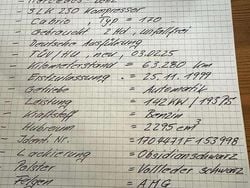 - Mercedes-Benz
- SLK 230 Kompressor
- Cabrio, Typ = 170
- Gebraucht 2 Hd, unfallfrei
- Deutsche Ausführung
- TÜV/HU, neu,
- Kilometerstand = 63 280 km
- Erstzulassung = 25.11.1999
- Getriebe = Automatik
- Leistung = 142 KW / 193 PS
- Kraftstoff = Benzin
- Hubraum = 2295 cm³
- Ident. Nr. = 1704471F153998
- Lackierung = Obsidianschwarz
- Polster = Volleder schwarz
- Felgen = AMG